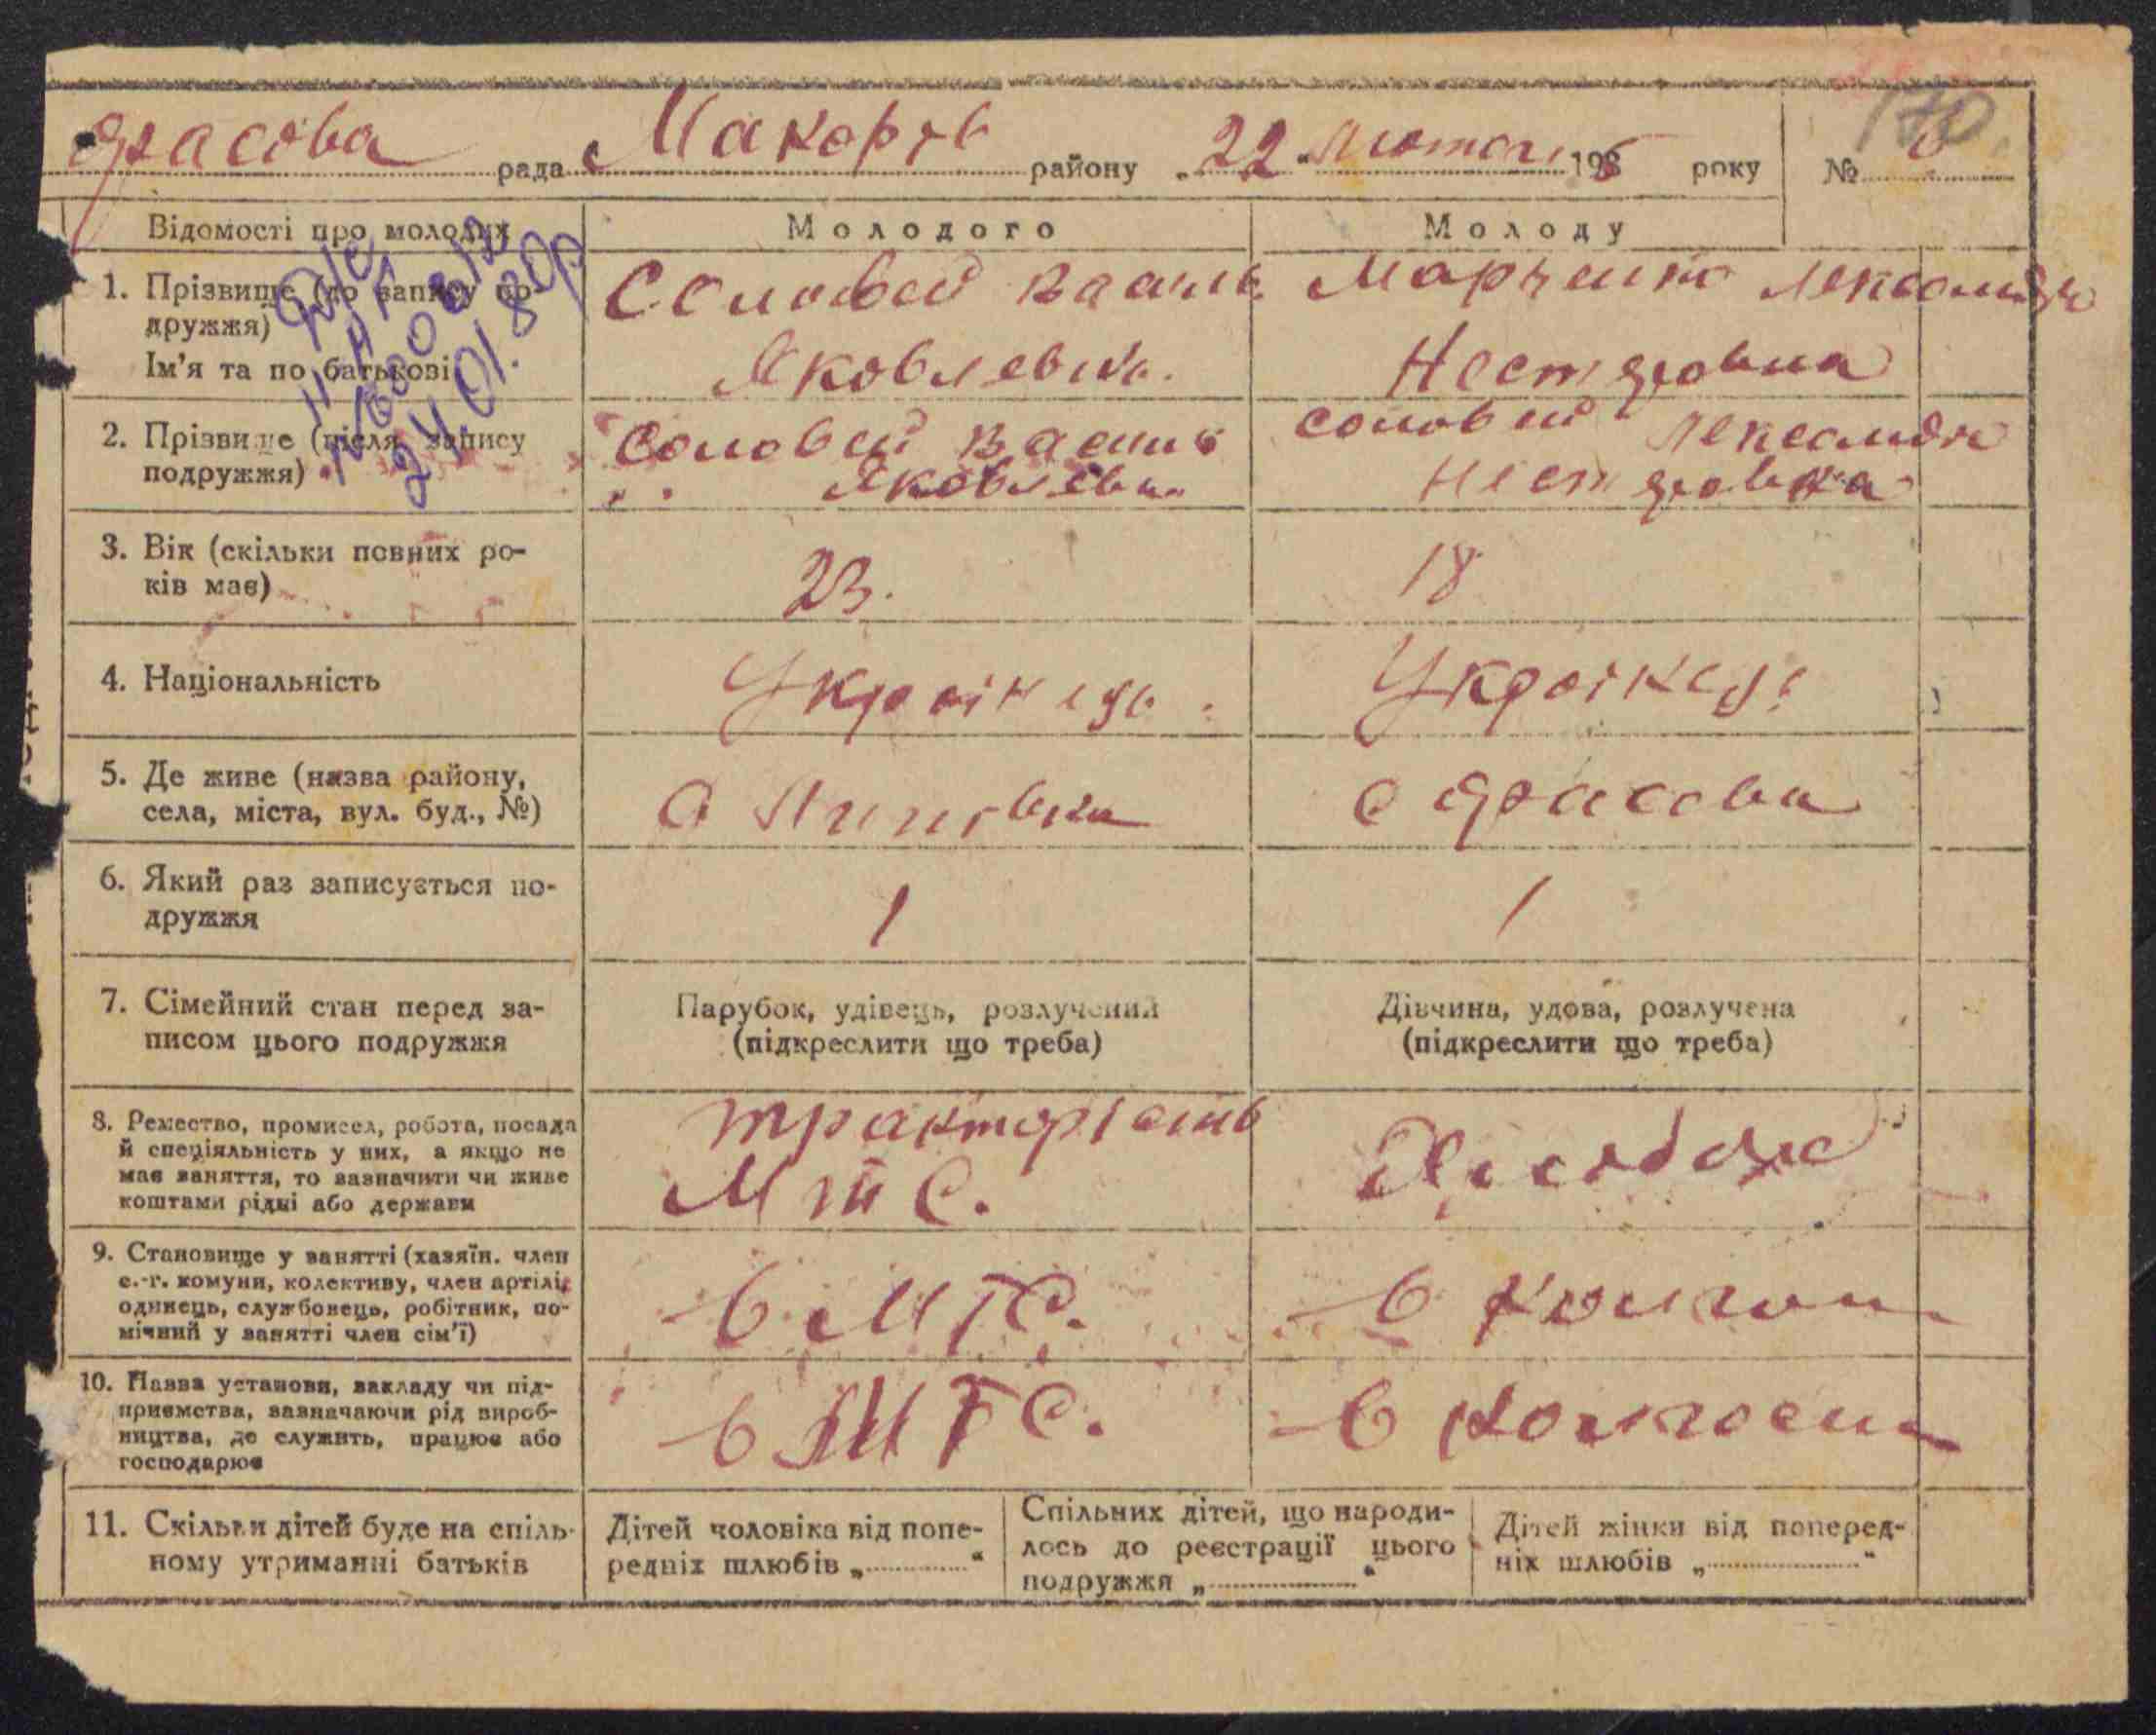 рада Макорів району „22“ лютого 193 року №
170
Відомості про молодих
Молодого
Молоду
1. Прізвище (до запису по-
дружжя)
Ім'я та по батькові
24.01.80р
Соловей Василь
Яковлевич.
Марченко Лександра
Нестеровна
2. Прізвище (після запису
подружжя)
Соловей Василь
Яковлевич
Соловей Лександра
Нестеровна
3. Вік (скільки повних ро-
ків має)
23.
18
4. Національність
Українець.
Українець
5. Де живе (назва району,
села, міста, вул. буд., №)
С Липівка
с
6. Який раз записується по-
дружжя
1
1
7. Сімейний стан перед за-
писом цього подружжя
Парубок, удівець, розлучений
(підкреслити що треба)
Дівчина, удова, розлучена
(підкреслити що треба)
8. Ремество, промисел, робота, посада
й спеціяльність у них, а якщо не
має заняття, то зазначити чи живе
коштами рідні або держави
тракторість
МТС.
9. Становище у занятті (хазяїн. член
с.-г. комуни, колективу, член артілі,
одинець, службовець, робітник, по-
мічний у занятті член сім'ї)
в МТС.
в
10. Назва установи, закладу чи під-
приємства, зазначаючи рід вироб-
ництва, де служить, працює або
господарює
в МТС.
в колгоспи
11. Скільки дітей буде на спіль-
ному утриманні батьків
Дітей чоловіка від попе-
редніх шлюбів „ “
Спільних дітей, що народи-
лось до реєстрації цього
подружжя „ “
Дітей жінки від поперед-
ніх шлюбів „ “